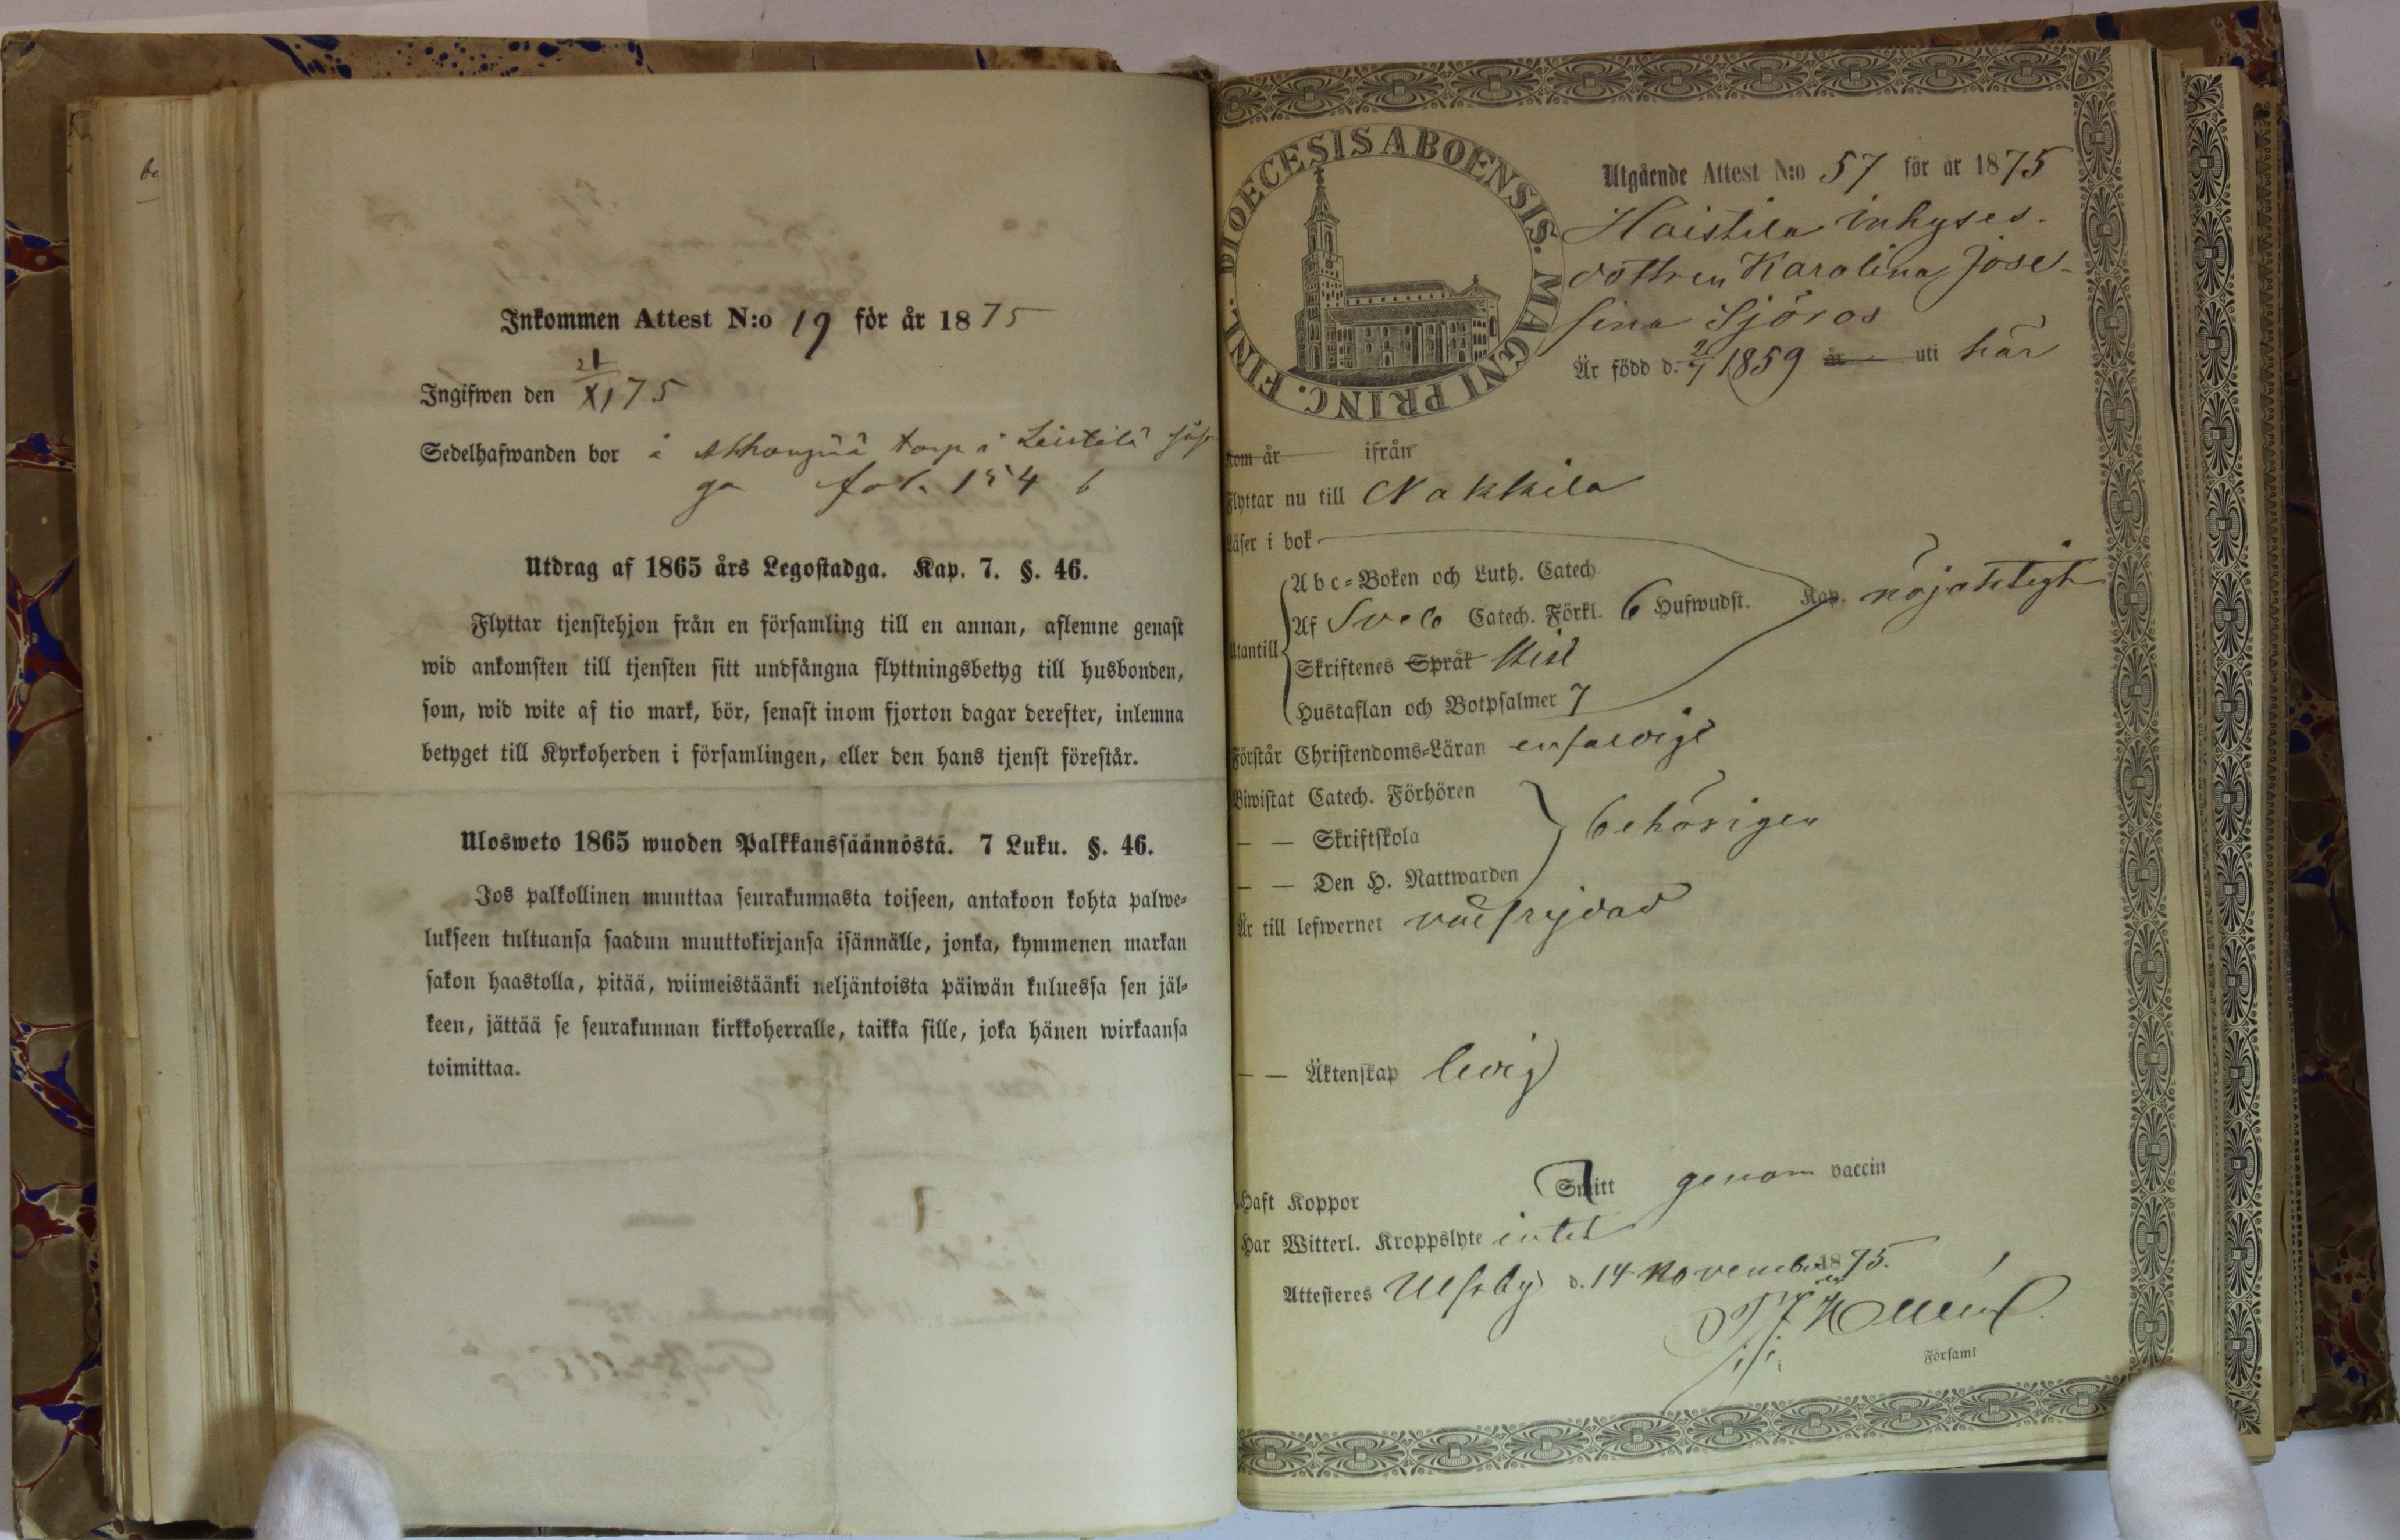 Inkommen Attest N:o 19 för år 1875
Ingifwen den 21/XI 75
Sedelhafwanden bor å torp i Leistilä
fol. 154 b
Utdrag af 1865 års Legostadga. Kap. 7. §. 46.
Flyttar tjenstehjon från en församling till en annan, aflemne genast
wid ankomsten till tjensten sitt undfångna flyttningsbetyg till husbonden,
som, wid wite af tio mark, bör, senast inom fjorton dagar derefter, inlemna
betyget till Kyrkoherden i församlingen, eller den hans tjenst förestår.
Ulosweto 1865 wuoden Palkkanssäännöstä. 7 Luku. §. 46.
Jos palkollinen muuttaa seurakunnasta toiseen, antakoon kohta palwe-
lukseen tultuansa saadun muuttokirjansa isännälle, jonka, kymmenen markan
sakon haastolla, pitää, wiimeistäänki neljäntoista päiwän kuluessa sen jäl-
keen, jättää se seurakunnan kirkkoherralle, taikka sille, joka hänen wirkaansa
toimittaa.
DIOECESIS ABOENSIS. MAGNI PRINC. FINL.
Utgående Attest N:o 57 för år 1875
Haistila inhyses-
dottren Karolina Jose-
fina Sjöros
Är född d. 1859 år uti här
Kom år ifrån
Flyttar nu till Nakkila
Läser i bok
Utantill
Abc-Boken och Luth. Catech.
Af Sveb Catech. Förkl. 6 Hufwudst. Kap. nöjaktigt
Skriftenes Språk
Hustaflan och Botpsalmer 7
Förstår Christendoms-Läran enfaldigt
Biwistat Catech. Förhören
— — Skriftskola behörigen
— — Den H. Nattwarden
Är till lefwernet välfrejdad
— — Äktenskap ledig
Haft Koppor Smitt genom vaccin
Har Witterl. Kroppslyte intet
Attesteres Ulfsby d. 14 November 1875.
Församl